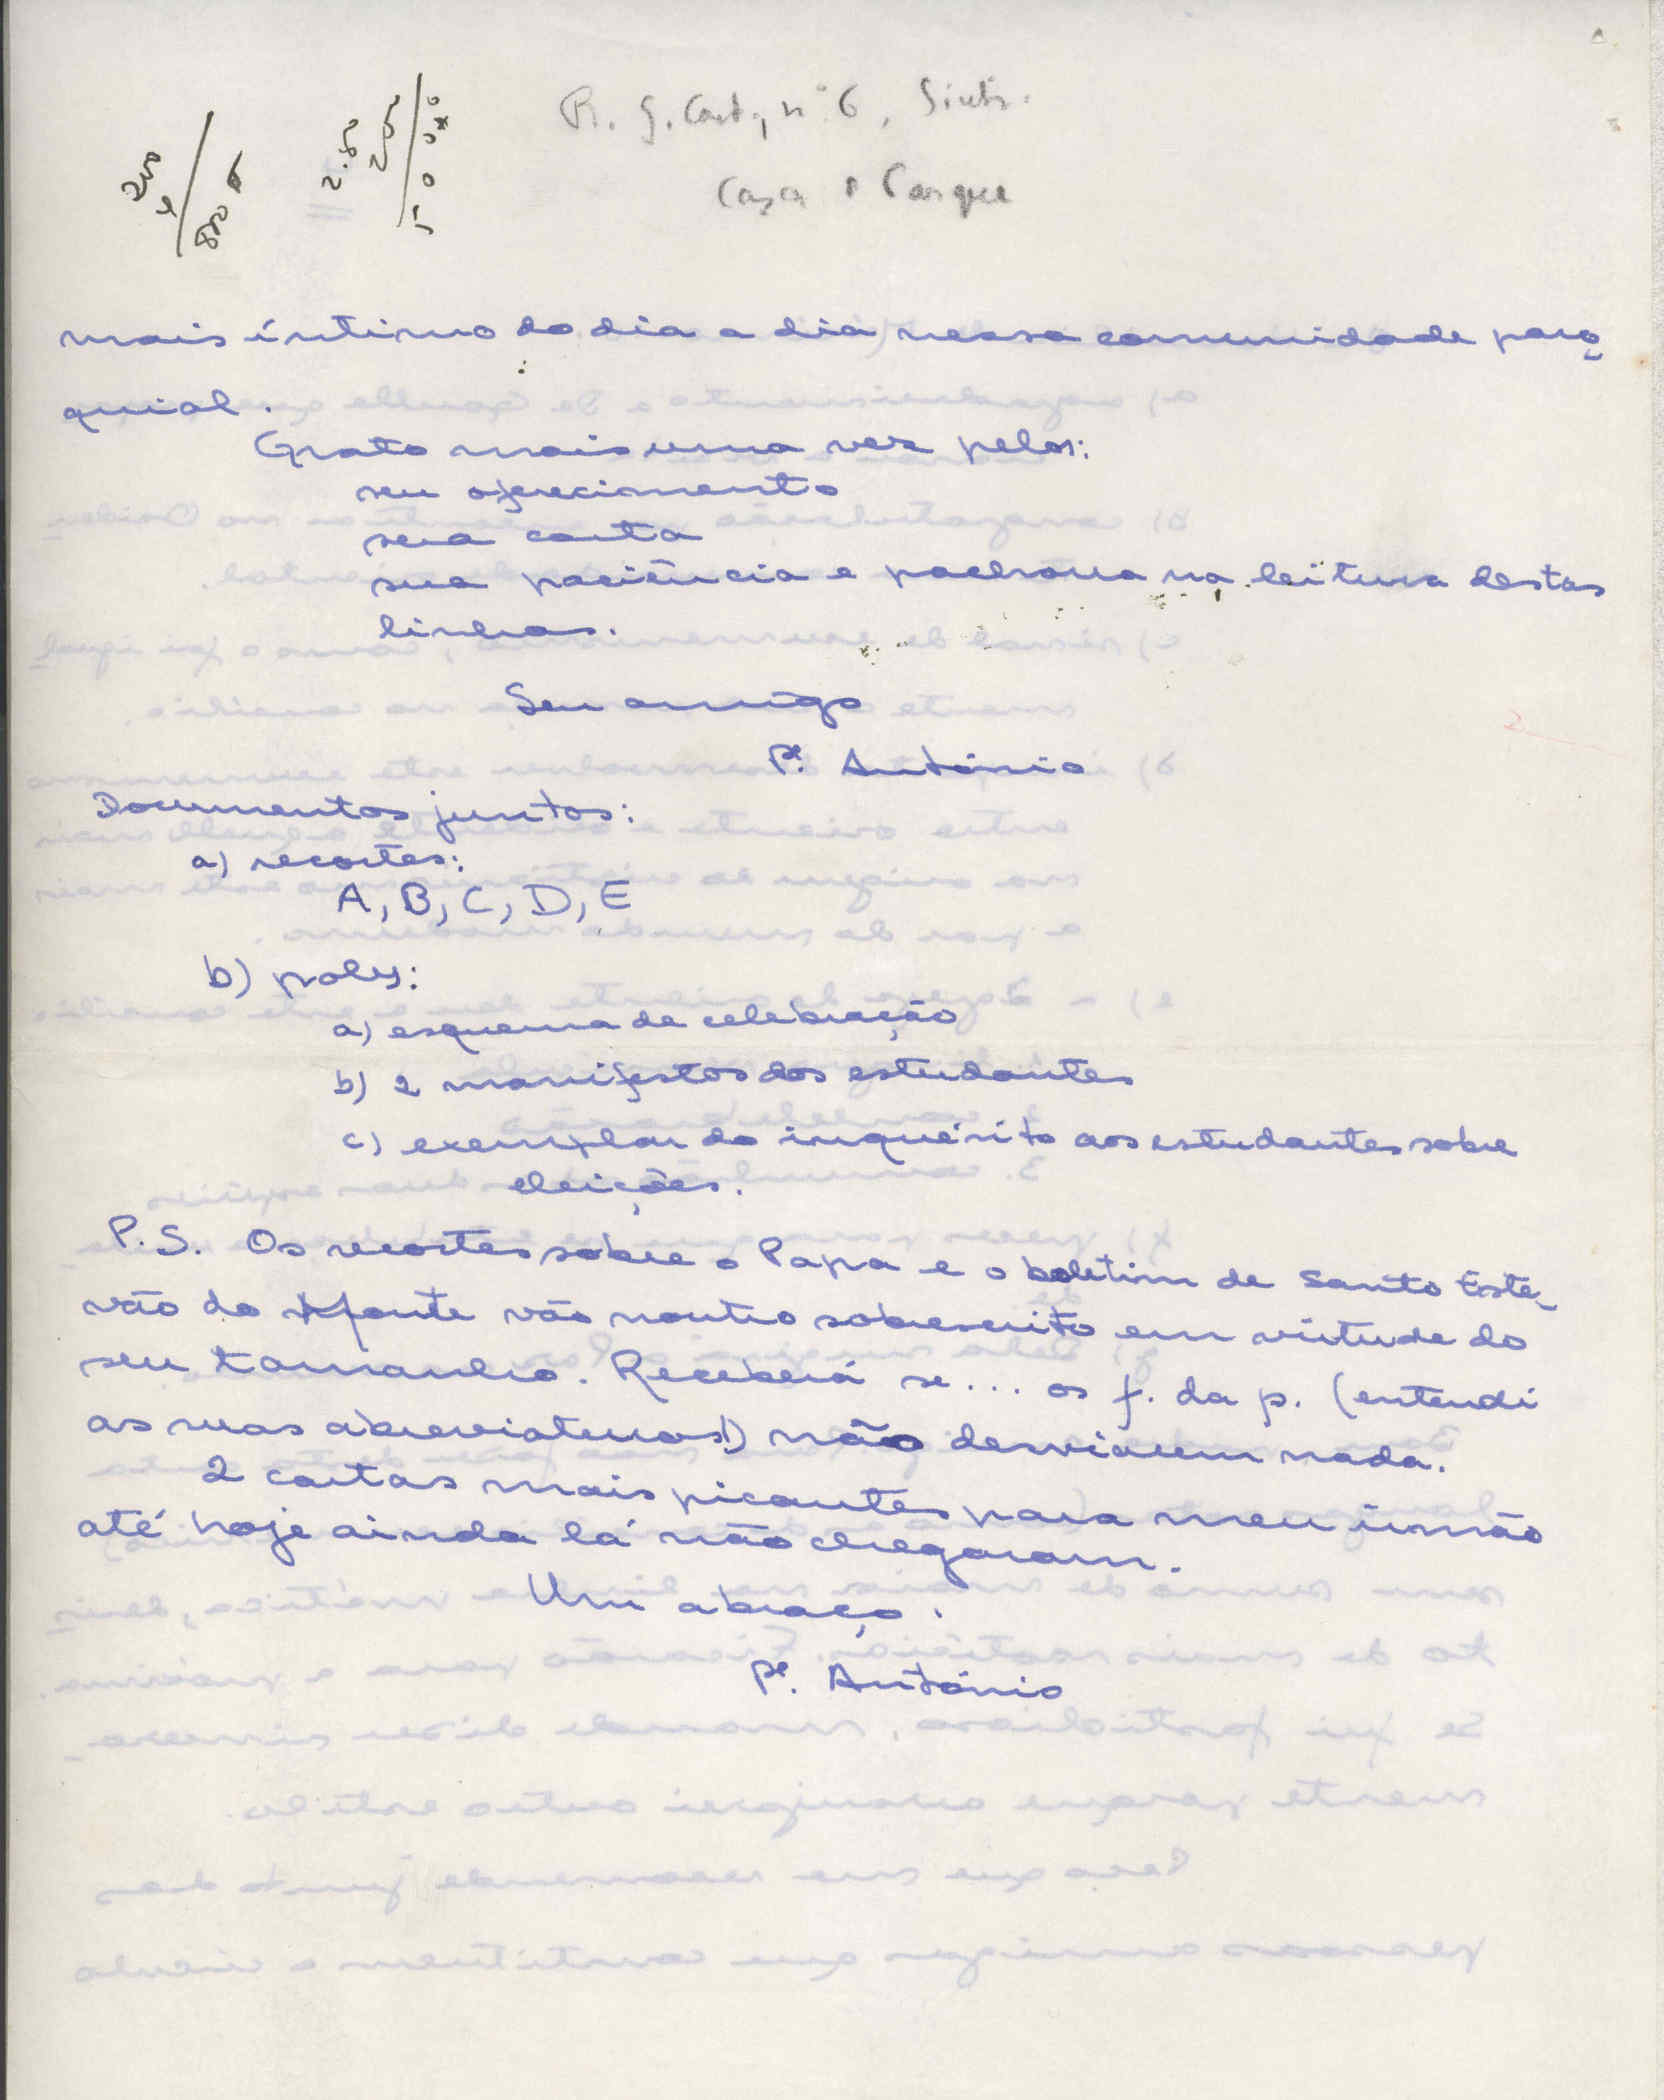 R. G. nº 6,
Casa Parque
mais íntimo do dia a dia nessa comunidade paro-
quial.
Grato mais uma vez pelos:
seu oferecimento
sua carta
sua paciência e pachorra na leitura destas
linhas.
Seu amigo
Pe. António
Documentos juntos:
a) recortes:
A, B, C, D, E
b) polys:
a) esquema de celebração
b) 2 manifestos dos estudantes
c) exemplar do inquérito aos estudantes sobre
eleições.
P.S. Os recortes sobre o Papa e o boletim de Santo Estê-
vão do vão noutro sobrescrito em virtude do
seu tamanho. Receberá se... os f. da p. (entendi
as suas abreviaturas!) não desviarem nada.
2 cartas mais picantes para meu irmão
até hoje ainda lá não chegaram.
Um abraço.
Pe. António